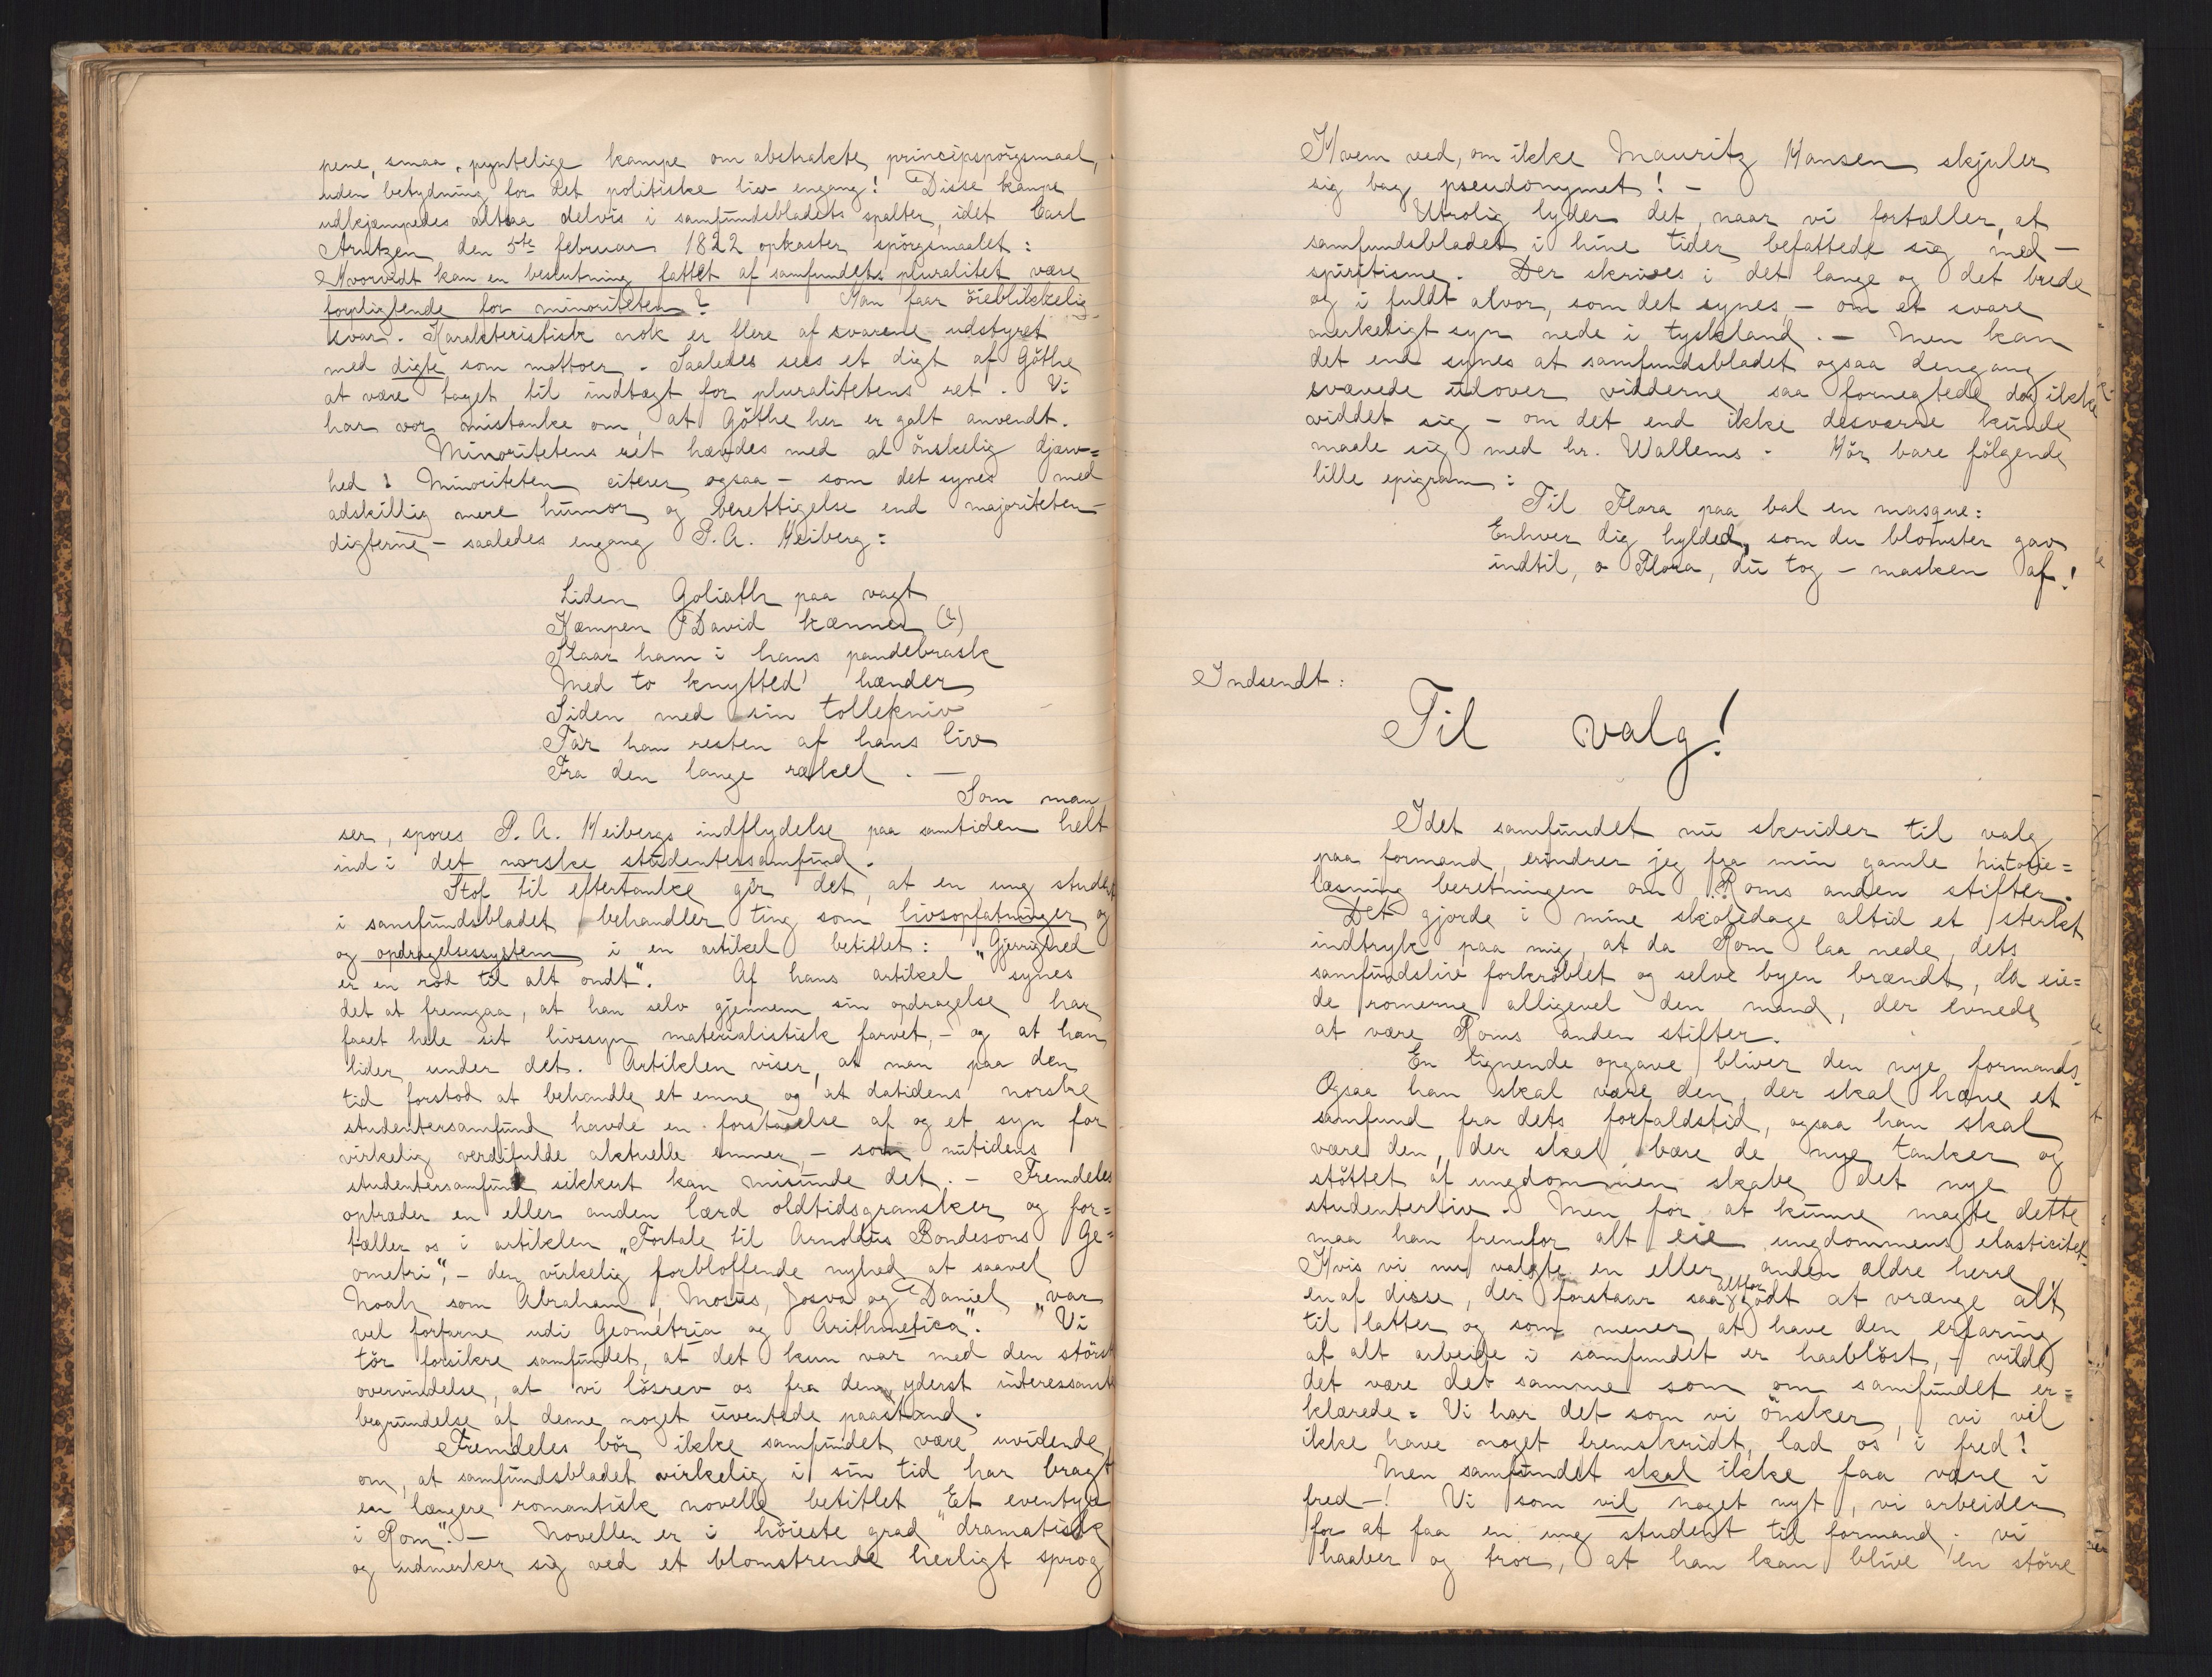 pene, smaa, pyntelige kampe om abstrakte principspörgsmaal,
uden betydning for det politiske liv engang! Disse kampe
udkjæmpedes altsaa delvis i samfundsbladets spalter, idet Carl
Arntzen den 5te februar 1822 opkaster spörgsmaalet:
Hvorvidt kan en beslutning fattet af samfundets pluralitet være
forpligtende for minoriteten? Man faar öieblikkelig
svar. Karakteristisk nok er flere af svarene udstyret
med digte som mottoer. Saaledes sees et digt af Göthe
at være taget til indtægt for pluralitetens ret. Vi
har vor mistanke om, at Göthe her er galt anvendt.
Minoritetens ret hævdes med al önskelig djærv=
hed! Minoriteten citerer ogsaa – som det synes med
adskillig mere humor og berettigelse end majoriteten –
digterne – saaledes engang P. A. Heiberg:
Liden Goliath paa vagt
Kæmpen David kænner (?)
Slaar ham i hans pandebrask
Med to knytted' hænder
Siden med sin tollekniv
Ta'r han resten af hans liv
Fra den lange rækel. –
Som man
ser, spores P. A. Heibergs indflydelse paa samtiden helt
ind i det norske studentersamfund.
Stof til eftertanke gir det, at en ung student
i samfundsbladet behandler ting som livsopfatninger og
og opdragelsessystem i en artikel betitlet: "Gjerrighed
er en rod til alt ondt". Af hans artikel synes
det at fremgaa, at han selv gjennem sin opdragelse har
faaet hele sit livssyn materialistisk farvet, – og at han
lider under det. Artiklen viser, at man paa den
tid forstod at behandle et emne og at datidens norske
studentersamfund havde en forstaaelse af og et syn for
virkelig verdifulde aktuelle emner, – som nutidens
studentersamfund sikkert kan misunde det. – Fremdeles
optræder en eller anden lærd oldtidsgransker og for=
tæller os i artiklen "Fortale til Arnoldus Bondesons Ge=
ometri", – den virkelig forbloffende nyhed at saavel
Noah som Abraham, Moses, Josva og Daniel "var
vel forfarne udi Geometria og Arithmetica". Vi
tör forsikre samfundet, at det kun var med den störst
overvindelse, at vi lösrev os fra den yderst interessante
begrundelse af denne noget uventede paastand.
Fremdeles bör ikke samfundet være uvidende
om, at samfundsbladet virkelig i sin tid har bragt
en længere romantisk novelle betitlet "Et eventyr
i Rom". – Novellen er i höieste grad dramatisk
og udmerker sig ved et blomstrende herligt sprog
Hvem ved, om ikke Mauritz Hansen skjuler
sig bag pseudonymet! –
Utrolig lyder det, naar vi fortæller, at
samfundsbladet i hine tider befattede sig med –
spiritisme. Der skrives i det lange og det brede
og i fuldt alvor, som det synes, – om et svare
merkeligt syn nede i tyskland. – Men kan
det end synes at samfundsbladet ogsaa dengang
svævede udover vidderne, saa fornegtede dog ikke
viddet sig – om det end ikke desværre kunde
maale sig med hr. Wallems. Hör bare fölgende
lille epigram:
Til Flora paa bal en masque:
Enhver dig hylded, som du blomster gav
indtil, o Flora, du tog – masken af!
Indsendt:
Til valg!
Idet samfundet nu skrider til valg
paa formand, erindrer jeg fra min gamle historie=
læsning beretningen om Roms anden stifter.
Det gjorde i mine skoledage altid et sterkt
indtryk paa mig, at da Rom laa nede, dets
samfundsliv forkröblet og selve byen brændt, da eie=
de romerne alligevel den mand, der evnede
at være Roms anden stifter.
En lignende opgave bliver den nye formands.
Ogsaa han skal være den, der skal hæve et
samfund fra dets forfaldstid, ogsaa han skal
være den, der skal bære de nye tanker og
stöttet af ungdommen skabe det nye
studenterliv. Men for at kunne magte dette
maa han fremfor alt eie ungdommens elasticitet.
Hvis vi nu valgte en eller anden ældre herre,
en af disse, der forstaar saa altfor godt at vrænge alt
til latter og som mener at have den erfaring
at alt arbeide i samfundet er haablöst, – vilde
det være det samme som om samfundet er=
klærede: Vi har det som vi önsker, vi vil
ikke have noget fremskridt, lad os i fred!
Men samfundet skal ikke faa være i
fred –! Vi som vil noget nyt, vi arbeider
for at faa en ung student til formand; vi
haaber og tror, at han kan blive en större